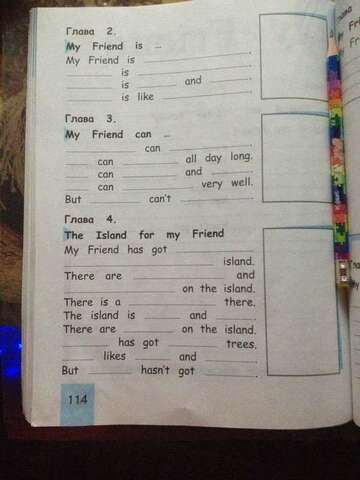 Глава 2.
My Friend is ...
My Friend is ____________
____________ is ____________
____________ is ____________ and ____________.
____________ is like ____________
Глава 3.
My Friend can ...
____________ can ____________
______ can ____________ all day long.
______ can ____________ and ____________.
______ can ____________ very well.
But ______ can't ____________.
Глава 4.
The Island for my Friend
My Friend has got ____________
____________ island.
There are ____________ and
____________ on the island.
There is a ____________ there.
The island is ______ and ______.
There are ____________ on the island.
______ has got ____________ trees.
______ likes ______ and ______.
But ______ hasn't got ____________.
114